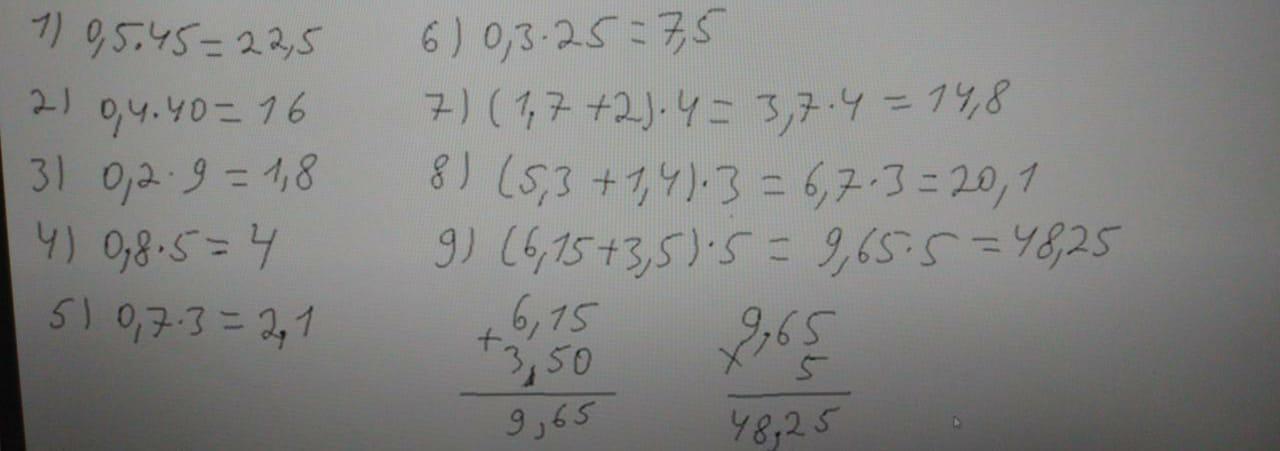 1) 0,5·45=22,5
2) 0,4·40=16
3) 0,2·9=1,8
4) 0,8·5=4
5) 0,7·3=2,1
6) 0,3·25=7,5
7) (1,7+2)·4=3,7·4=14,8
8) (5,3+1,4)·3=6,7·3=20,1
9) (6,15+3,5)·5=9,65·5=48,25
+6,15
3,50
9,65
9,65
× 5
48,25